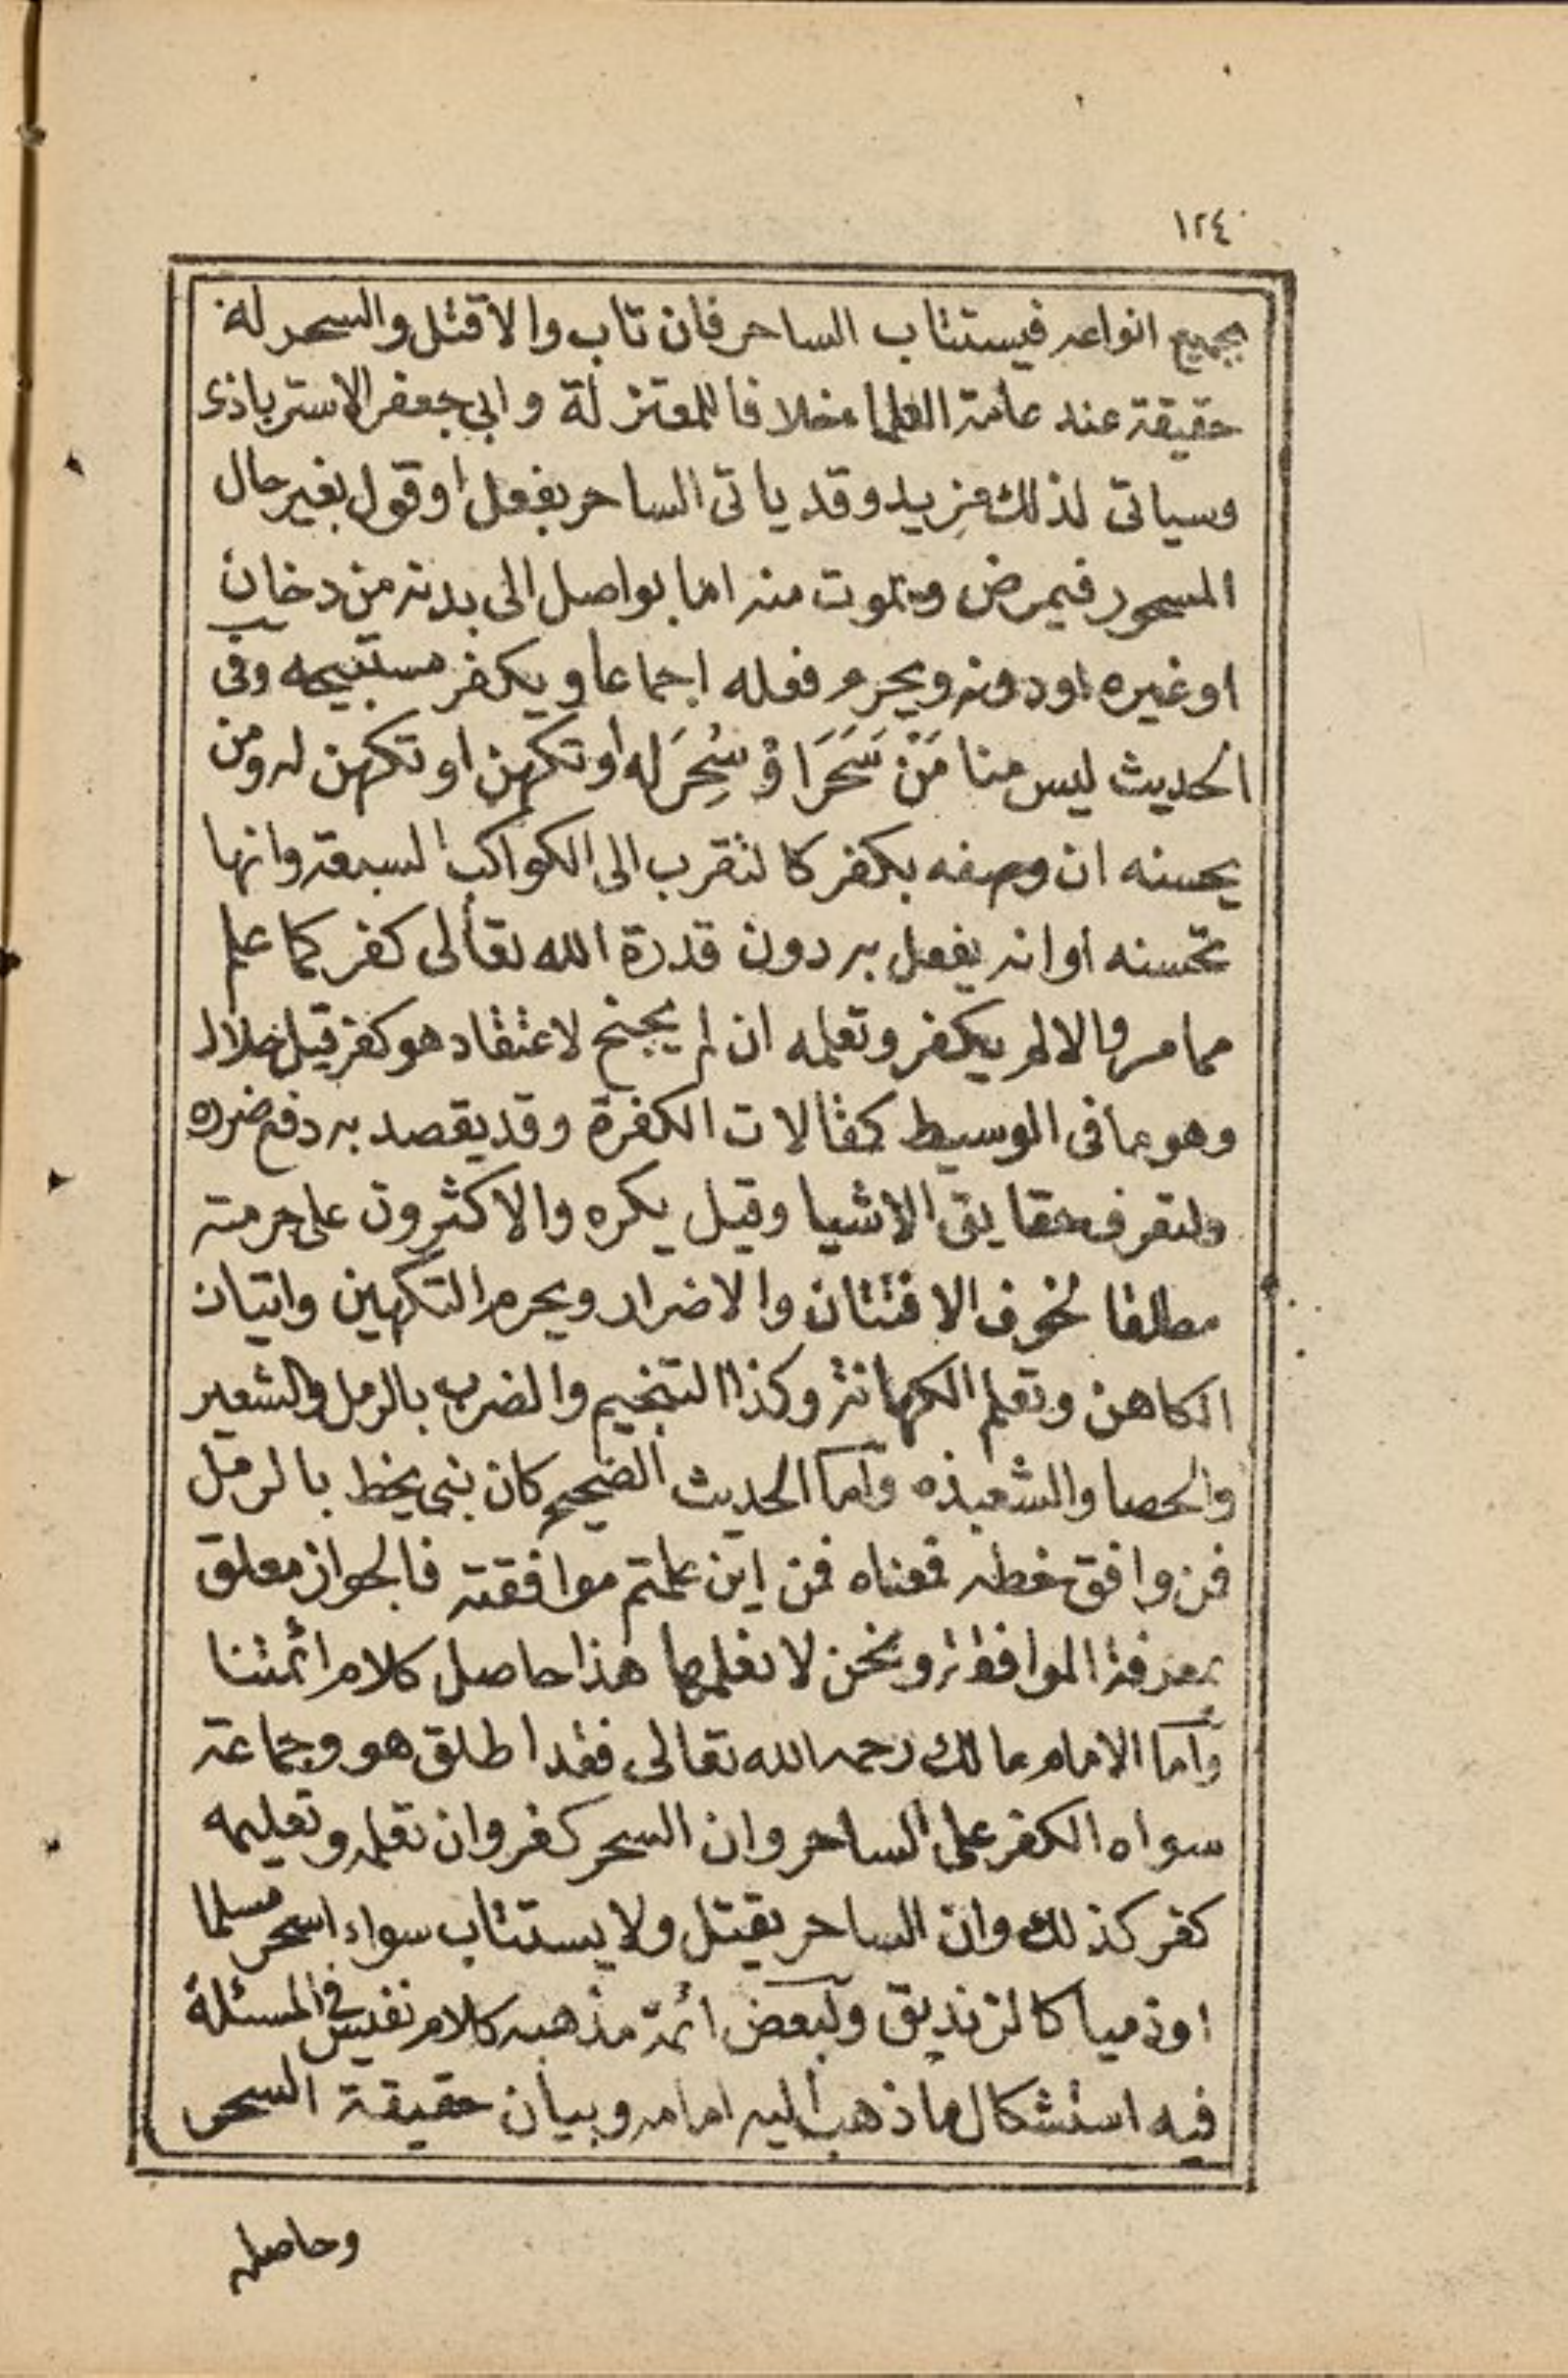 ١٢٤
بجميع انواعه فيستتاب الساحر فان تاب والا قتل والسحر له
حقيقة عند عامة العلما خلافا للمعتزلة وابي جعفر الاسترباذى
وسياتى لذلك مزيد وقد ياتى الساحر بفعل او قول بغير حال
المسحور فيمرض ويموت منه اما بواصل الى بدنه من دخان
او غيره او دونه ويحرم فعله اجماعا ويكفر مستبيحه وفى
الحديث ليس منا مَنْ سَحَرَ اوْ سُحِرَ له او تكهن او تكهن له ومن
يحسنه ان وصفه بكفر كالتقرب الى الكواكب السبعة وانها
تحسنه او انه يفعل به دون قدرة الله تعالى كفر كما علم
مما مر والا لم يكفر وتعلمه ان لم يجنح لاعتقاد هو كفر قيل حلال
وهو ما فى الوسيط كمقالات الكفرة وقد يقصد به دفع ضرره
ولتعرف حقايق الاشيا وقيل يكره والاكثرون على حرمته
مطلقا لخوف الافتتان والاضرار ويحرم التكهين واتيان
الكاهن وتعلم الكهانة وكذا التنجيم والضرب بالرمل والشعير
والحصا والشعبذه وَاما الحديث الصحيح كان نبى يخط بالرمل
فمن وافق خطه فمعناه فمن اين علمتم موافقته فالجواز معلق
بمعرفة الموافقة ونحن لا نعلمها هذا حاصل كلام ائمتنا
وَاما الامام مالك رحمه الله تعالى فقد اطلق هو وجماعة
سواه الكفر على الساحر وان السحر كفر وان تعلمه وتعليمه
كفر كذلك وان الساحر يقتل ولا يستتاب سواء اسحر مسلما
او ذميا كالزنديق ولبعض ائمة مذهبه كلام نفيس فى المسئلة
فيه استشكال ما ذهب اليه امامه وبيان حقيقة السحر
وحاصله